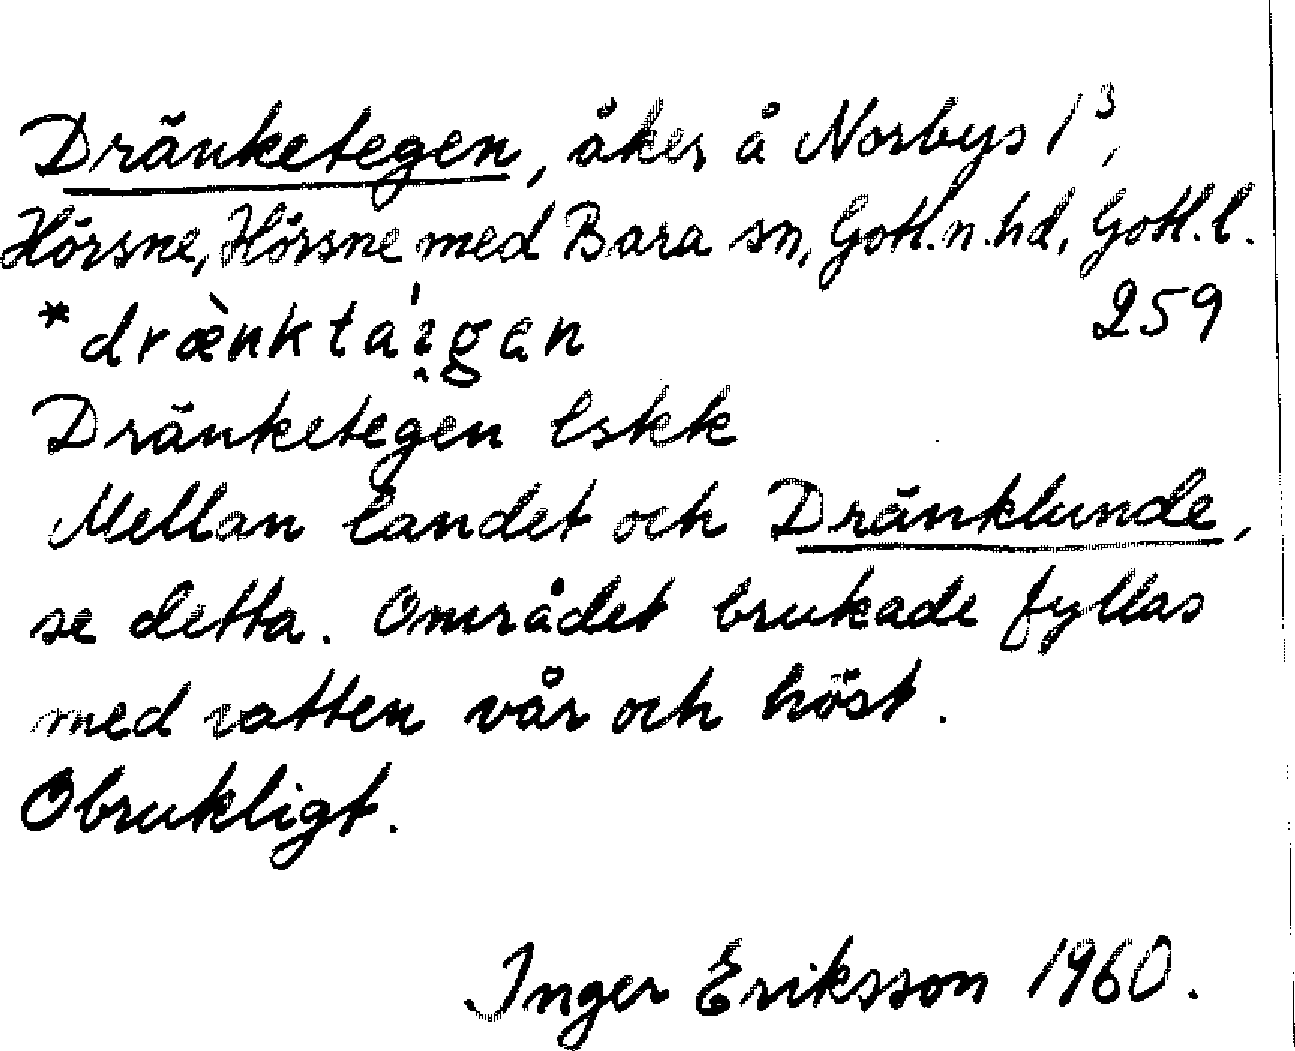 Dränketegen, åker å Norbys 1³,
Hörsne, Hörsne med Bara sn, Gotl.n.hd, Gotl.l.
259
Dränketegen lskk
Mellan landet och Dränklunde,
se detta. Området brukade fyllas
med vatten vår och höst.
Obrukligt.
Inger Eriksson 1960.